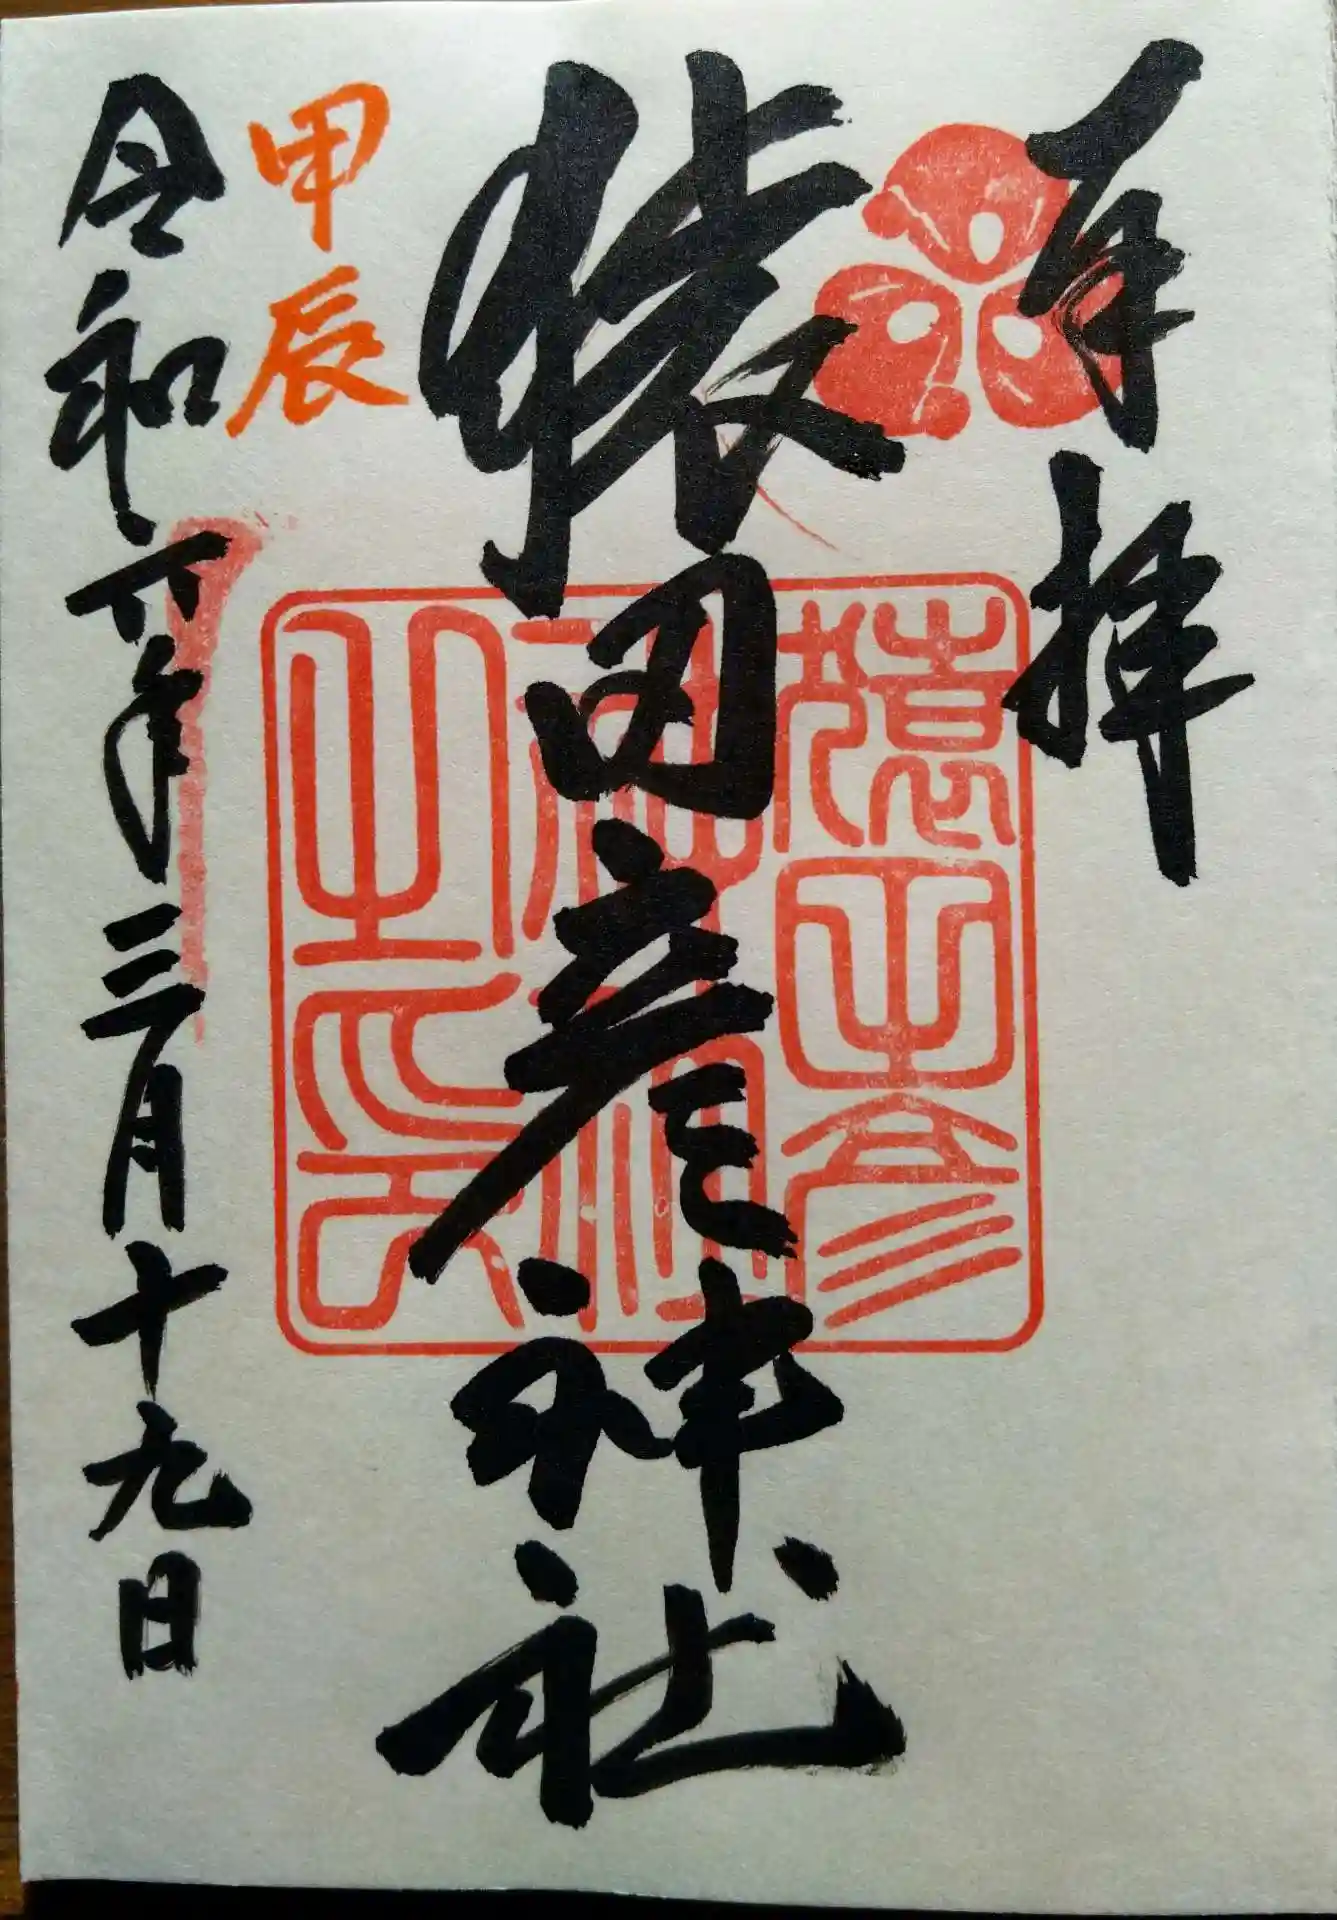 再拝
猿田彦神社
甲辰
令和六年三月十九日
猿田彦
神社
之印